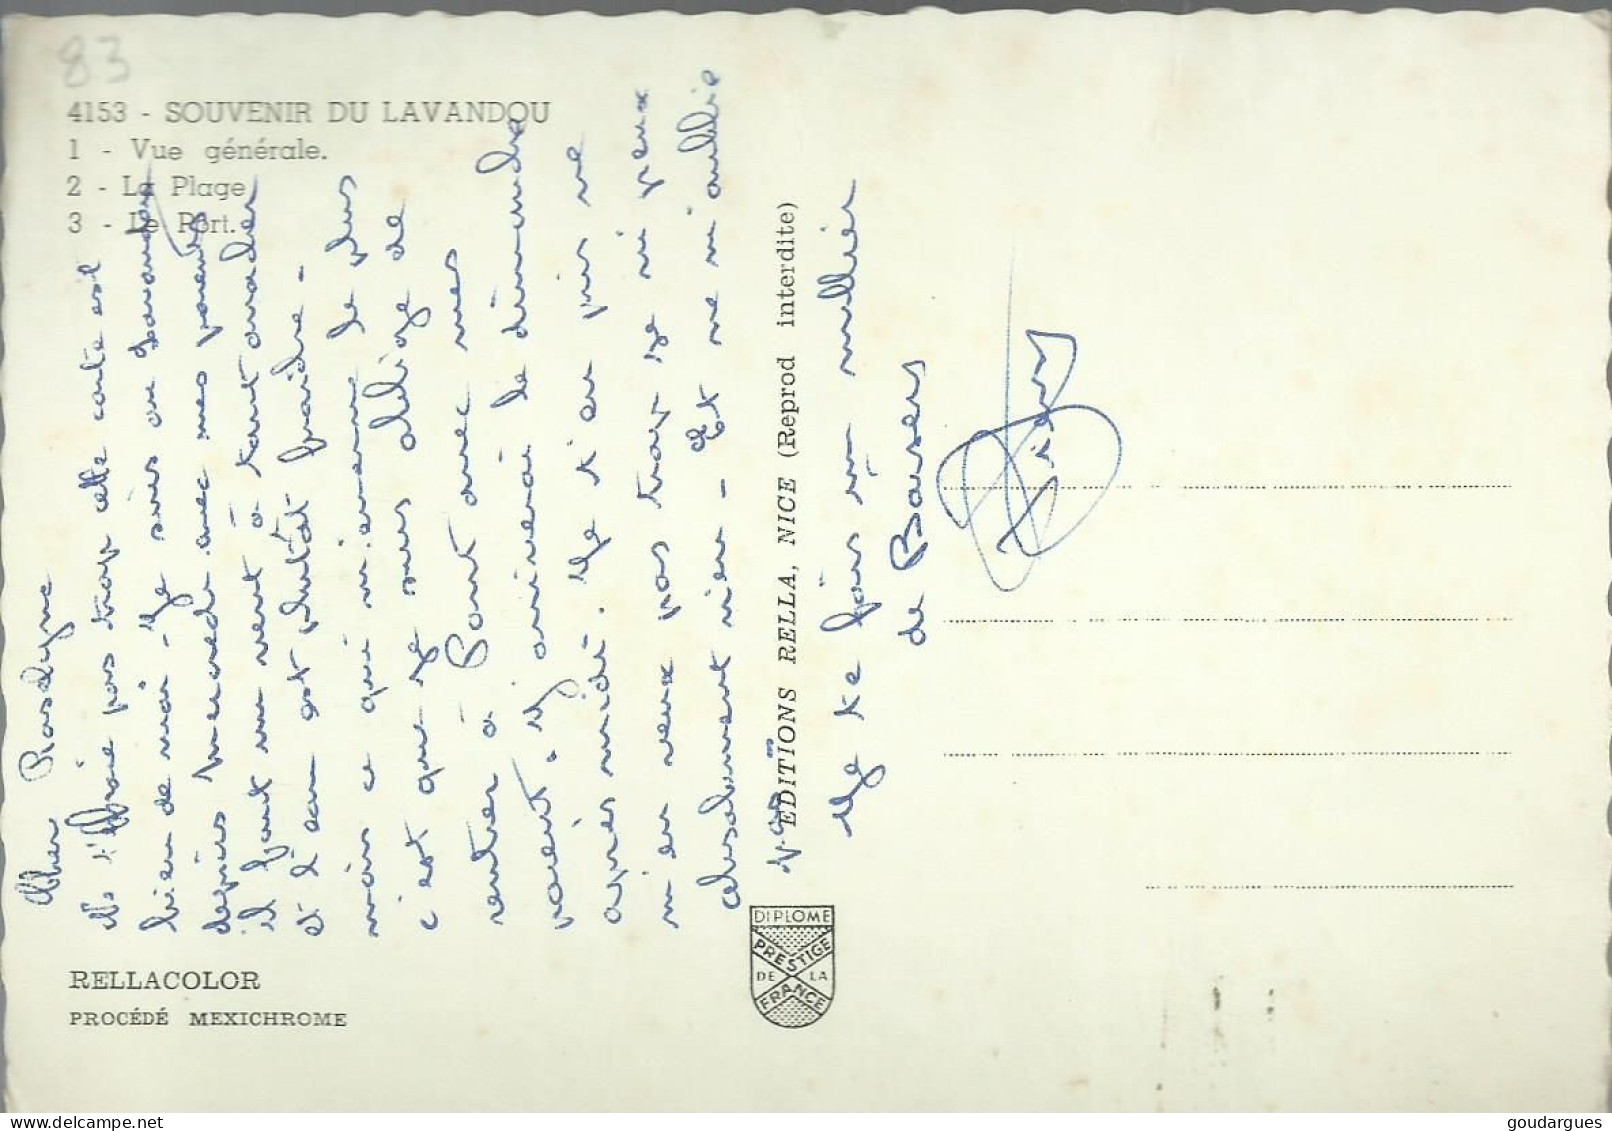 83
4153 - SOUVENIR DU LAVANDOU
1 - Vue générale.
2 - La Plage
3 - Le Port.
Cher Roselyne
pas trop cette carte est
bien de moi - Je suis au Lavandou
depuis mercredi avec mes parents
il faut un vent à tout
et l'eau est plutôt froide -
mais ce qui m'ennuie le plus
c'est que je suis obligé de
rentrer à Pont avec mes
parents, j'y arriverai le dimanche
après midi. Je t'en prie ne
m'en veux pas trop je ni peux
absolument rien - Et ne m'oublie
pas
Je te fais un millier
de Baisers
RELLACOLOR
PROCÉDÉ MEXICHROME
EDITIONS RELLA, NICE (Reprod interdite)
DIPLOME
PRESTIGE
DE LA
FRANCE
goudargues